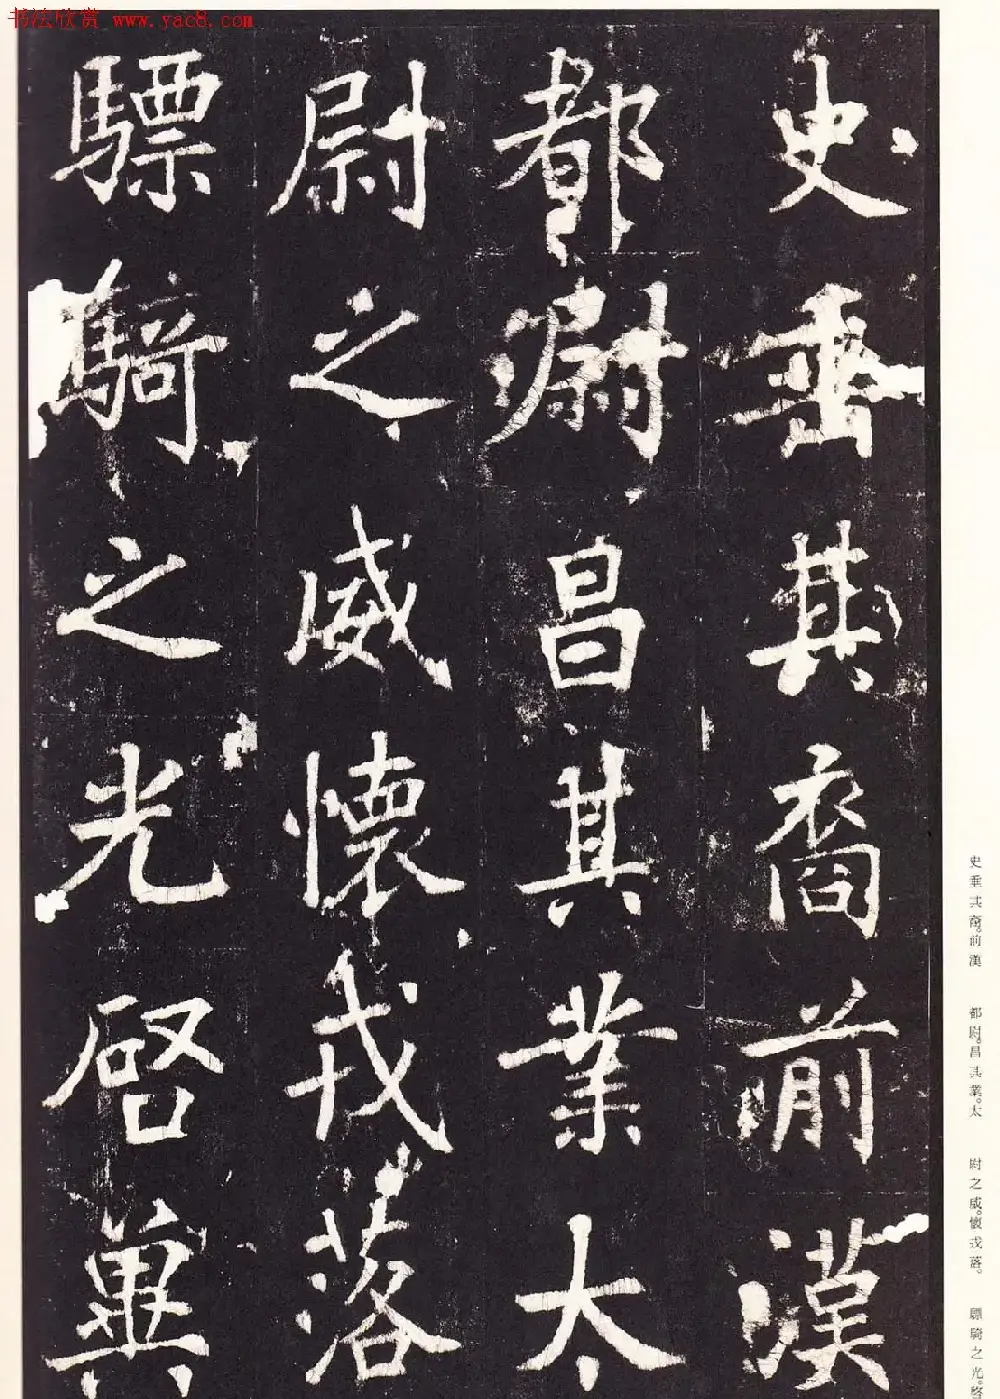 书法欣赏 www.yac8.com
史垂其裔前漢
都尉昌其業太
尉之威懷戎落
驃騎之光啓冀
史垂其裔。前漢
都尉。昌其業。太
尉之威。懷戎落。
驃騎之光。啓